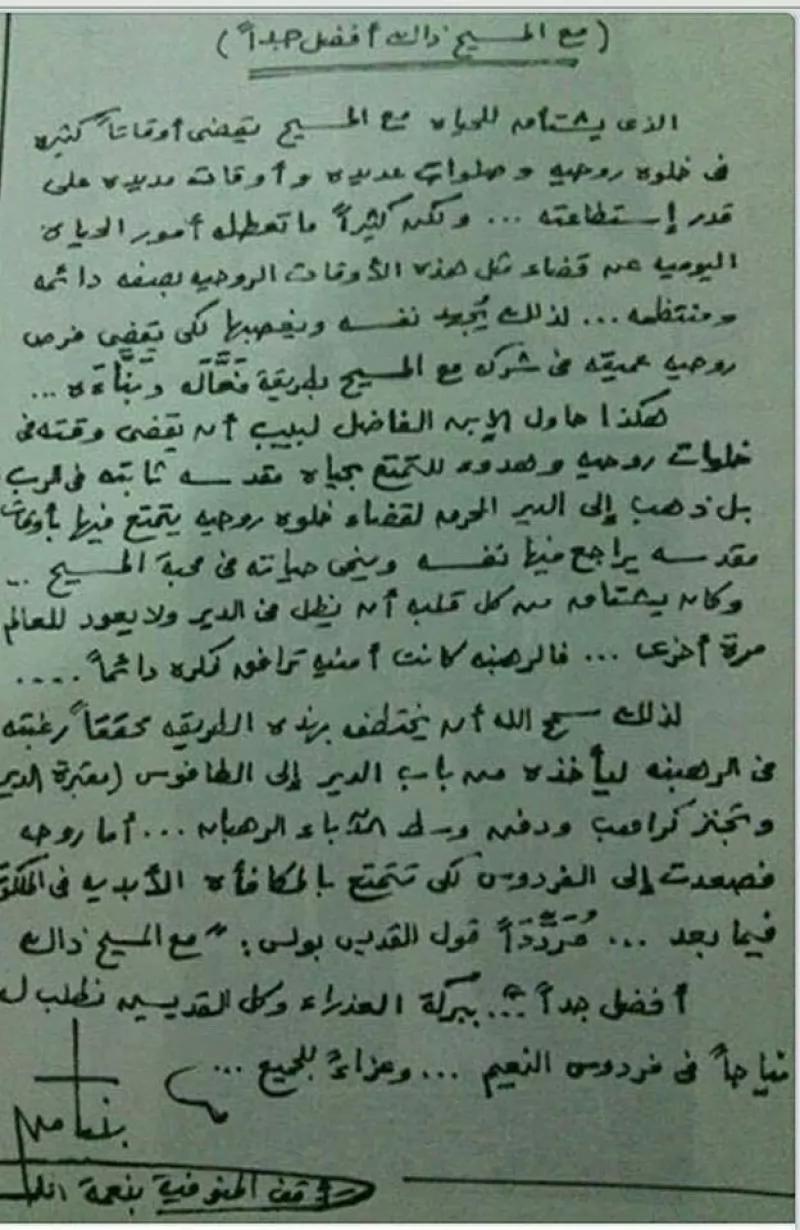 ( مع المسيح ذاك أفضل جداً )
الذى يشتاق للحياه مع المسيح يقضى أوقاتاً كثيره
فى خلوه روحيه وصلوات عديده وأوقات مديده على
قدر إستطاعته ... ولكن كثيراً ما تعطله أمور الحياه
اليوميه عن قضاء مثل هذه الأوقات الروحيه بصفه دائمه
ومنتظمه ... لذلك يُجهد نفسه ويغصبها لكى يقضى فرص
روحيه عميقه فى شركه مع المسيح بطريقة فَعَّاله وبَنَّاءَه ...
هكذا حاول الإبن الفاضل لبيب أن يقضى وقته فى
خلوات روحيه وهدوء للتمتع بحياه مقدسه ثابته فى الرب
بل ذهب إلى الدير المحرق لقضاء خلوه روحيه يتمتع فيها بأوقات
مقدسه يراجع فيها نفسه وينمى حياته فى محبة المسيح ...
وكان يشتاق من كل قلبه أن يظل فى الدير ولا يعود للعالم
مرة أخرى ... فالرهبنه كانت أمنيه ترافق فكره دائماً ....
لذلك سمح الله أن يختطف بهذه الطريقه محققاً رغبته
فى الرهبنه ليأخذه من باب الدير إلى الطافوس (مقبرة الدير
وتجنز كراهب ودفن وسط الآباء الرهبان ... أما روحه
فصعدت إلى الفردوس لكى تتمتع بالمكافأه الأبديه فى الملكوت
فيما بعد ... مُرَدِّدَاً قول القديس بولس : "مع المسيح ذاك
أفضل جداً" ... ببركة العذراء وكل القديسين نطلب ل
نياحاً فى فردوس النعيم ... وعزاءً للجميع ...
بنيامين
أسقف المنوفية بنعمة الله